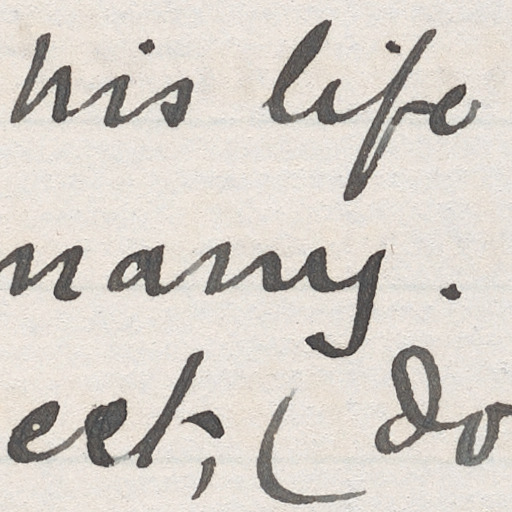 his life
many.
eet, (do